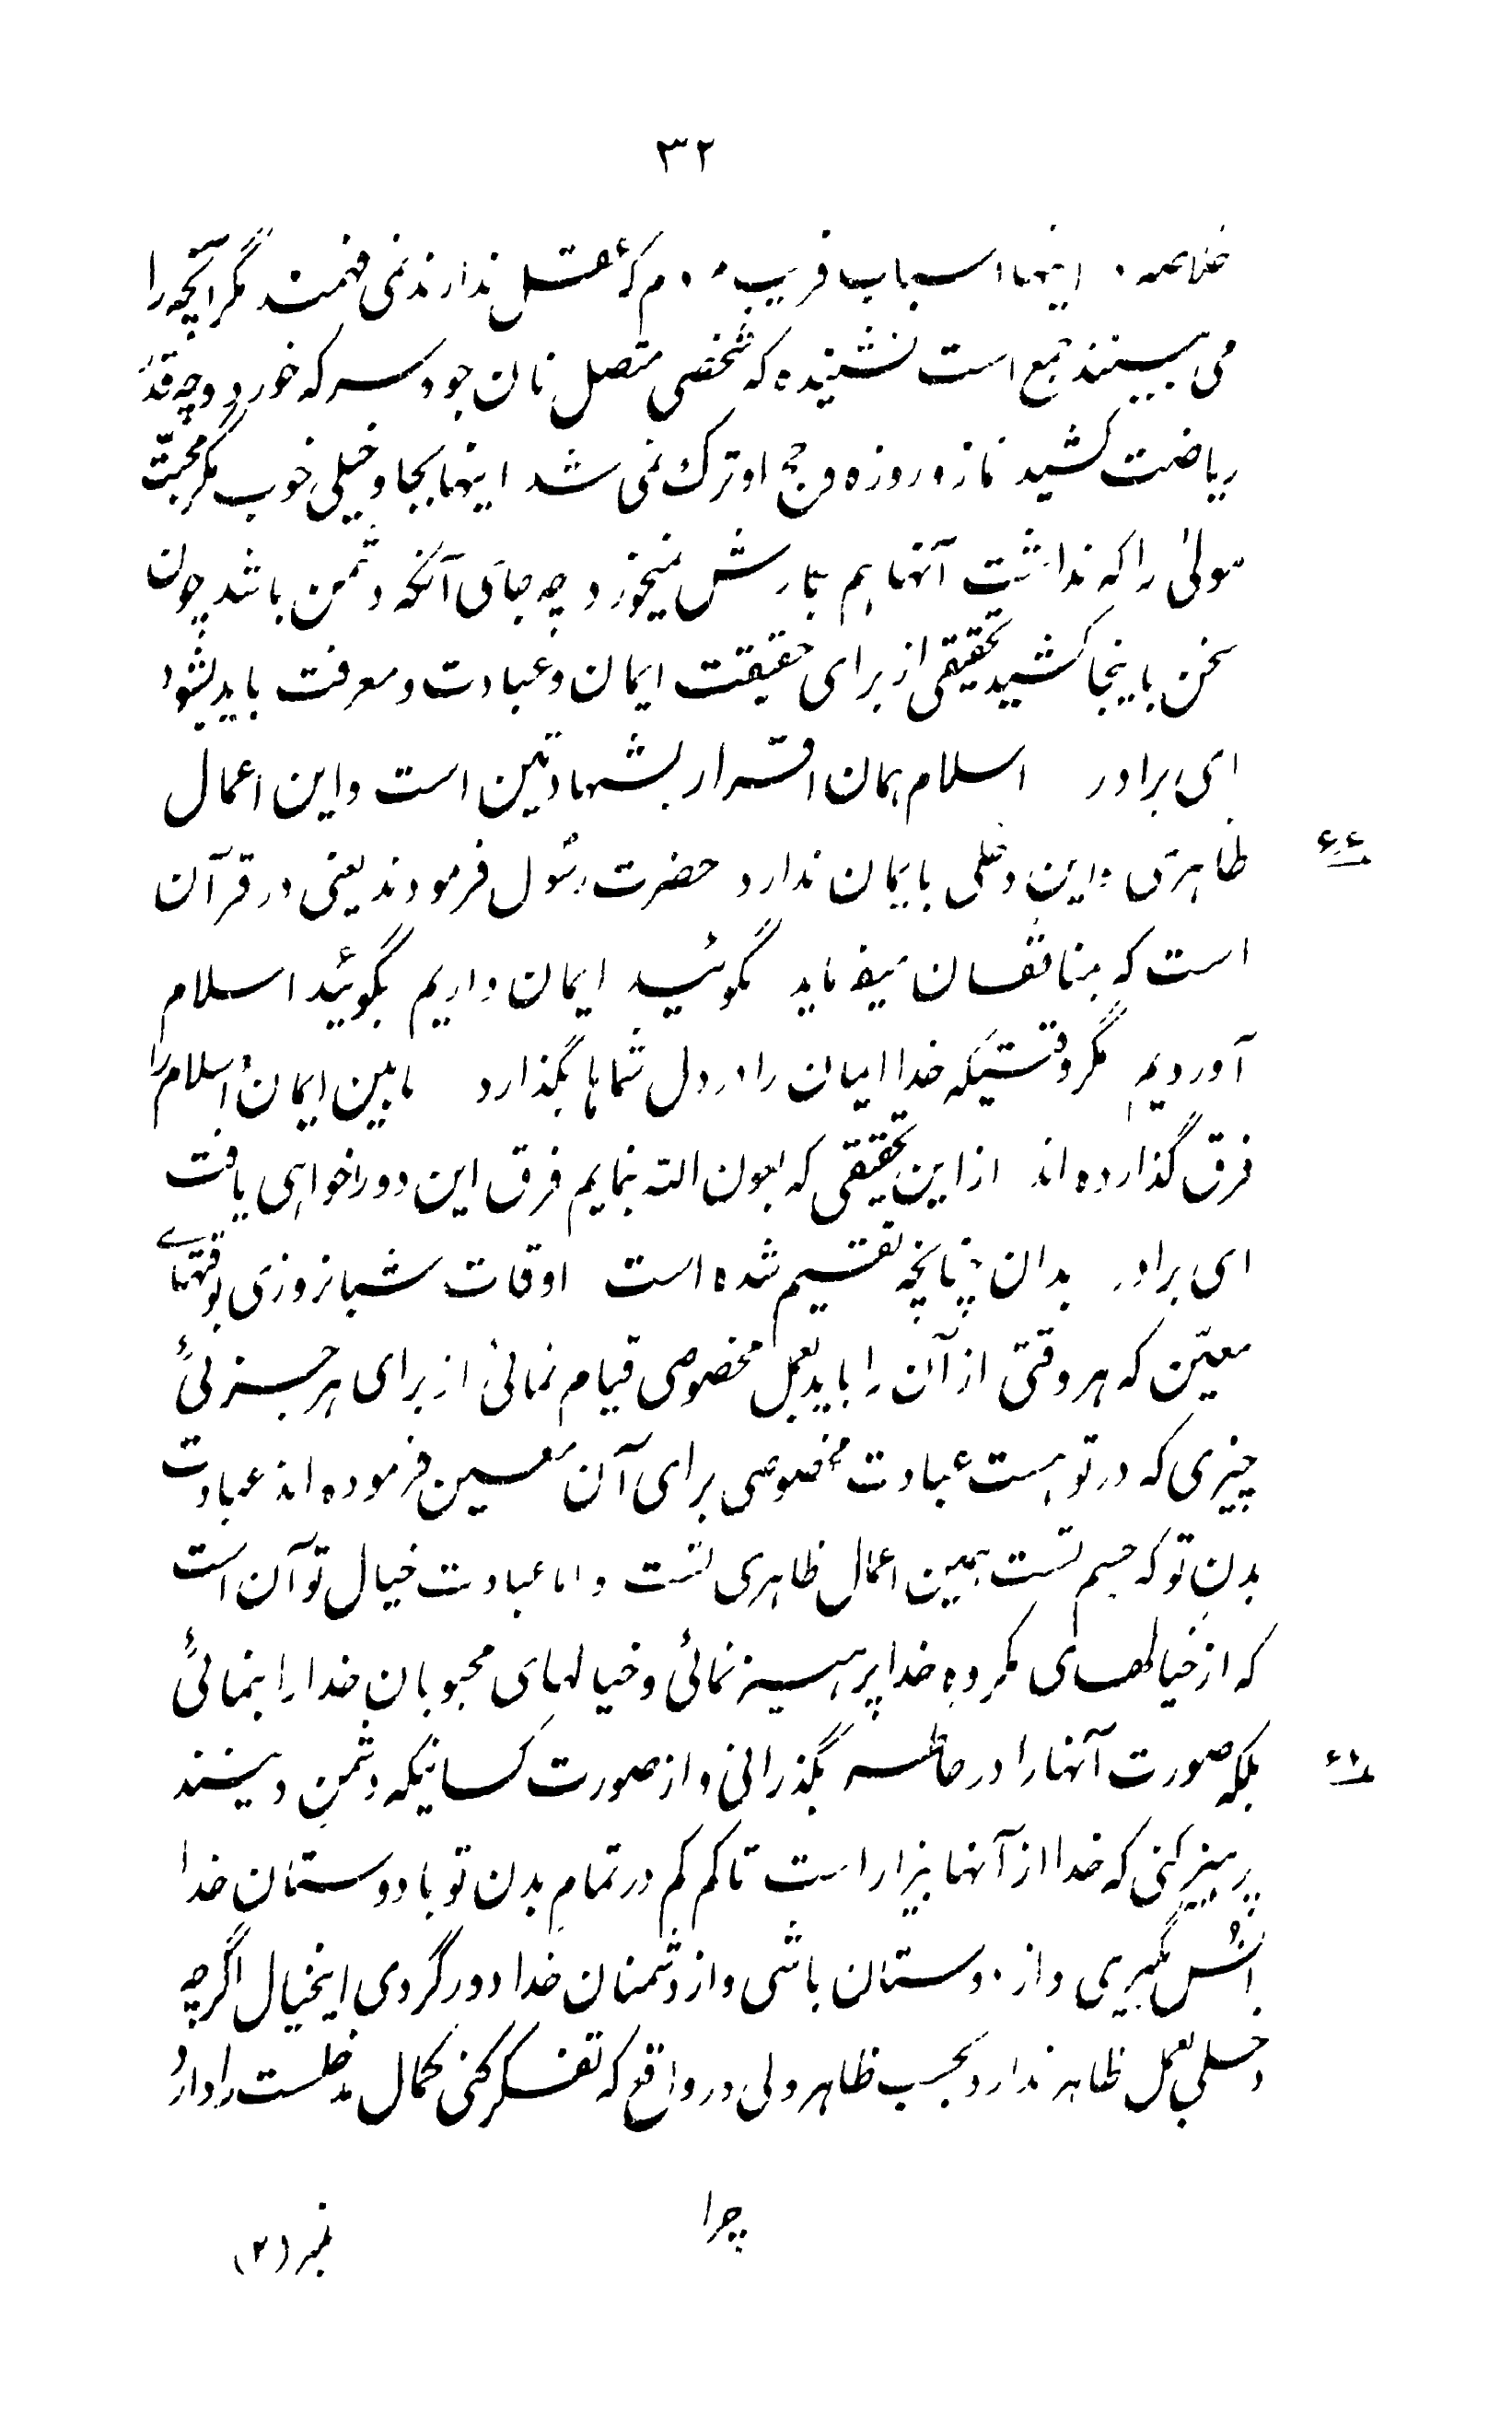 ۳۲
خلاصه اینها اسباب فریب مردم که عقل ندارند نمی فهمند مگر آنچه را
می بینند جمع است نشنیده که شخصی متصل نان جو و سرکه خورد و چه قدر
ریاضت کشید نماز و روزه و حج او ترک نمی شد اینها بجا و خیلی خوب مگر محبّت
مولیٰ را که نداشت آنها هم بکارش نمیخورد چه جای آنکه دشمن باشد چون
سخن باینجا کشید تحقیقی از برای حقیقت ایمان و عبادت و معرفت باید بشود
ای برادر اسلام همان اقرار بشهادتین است و این اعمال
ظاهری و این دخلی بایمان ندارد حضرت رسول فرمودند یعنی در قرآن
است که بمنافقان میفرماید نگوئید ایمان داریم بگوئید اسلام
آوردیم مگر وقتیکه خدا ایمان را در دل شماها بگذارد مابین ایمان و اسلام را
فرق گذارده‌اند از این تحقیقی که بعون الله بنمایم فرق این دو را خواهی یافت
ای برادر بدان چنانچه تقسیم شده است اوقات شبانروزی بوقتهای
معیّن که هر وقتی از آن را باید بعمل مخصوصی قیام نمائی از برای هر جزئی
چیزی که در تو هست عبادت مخصوصی برای آن معین فرموده‌اند عبادت
بدن تو که جسم تست همین اعمال ظاهری تست و اما عبادت خیال تو آن است
که از خیالهای مکروه خدا پرهیز نمائی و خیالهای محبوبان خدا را بنمائی
بلکه صورت آنها را در خاطر بگذرانی و از صورت کسانیکه دشمن دینند
پرهیز کنی که خدا از آنها بیزار است تا کم کم در تمام بدن تو با دوستان خدا
انس بگیری و از دوستان باشی و از دشمنان خدا دور گردی اینخیال اگرچه
دخلی بعمل ظاهر ندارد بحسب ظاهر ولی در واقع که تفکر کنی کمال مدخلیت را دارد
چرا
نمبر (۲)